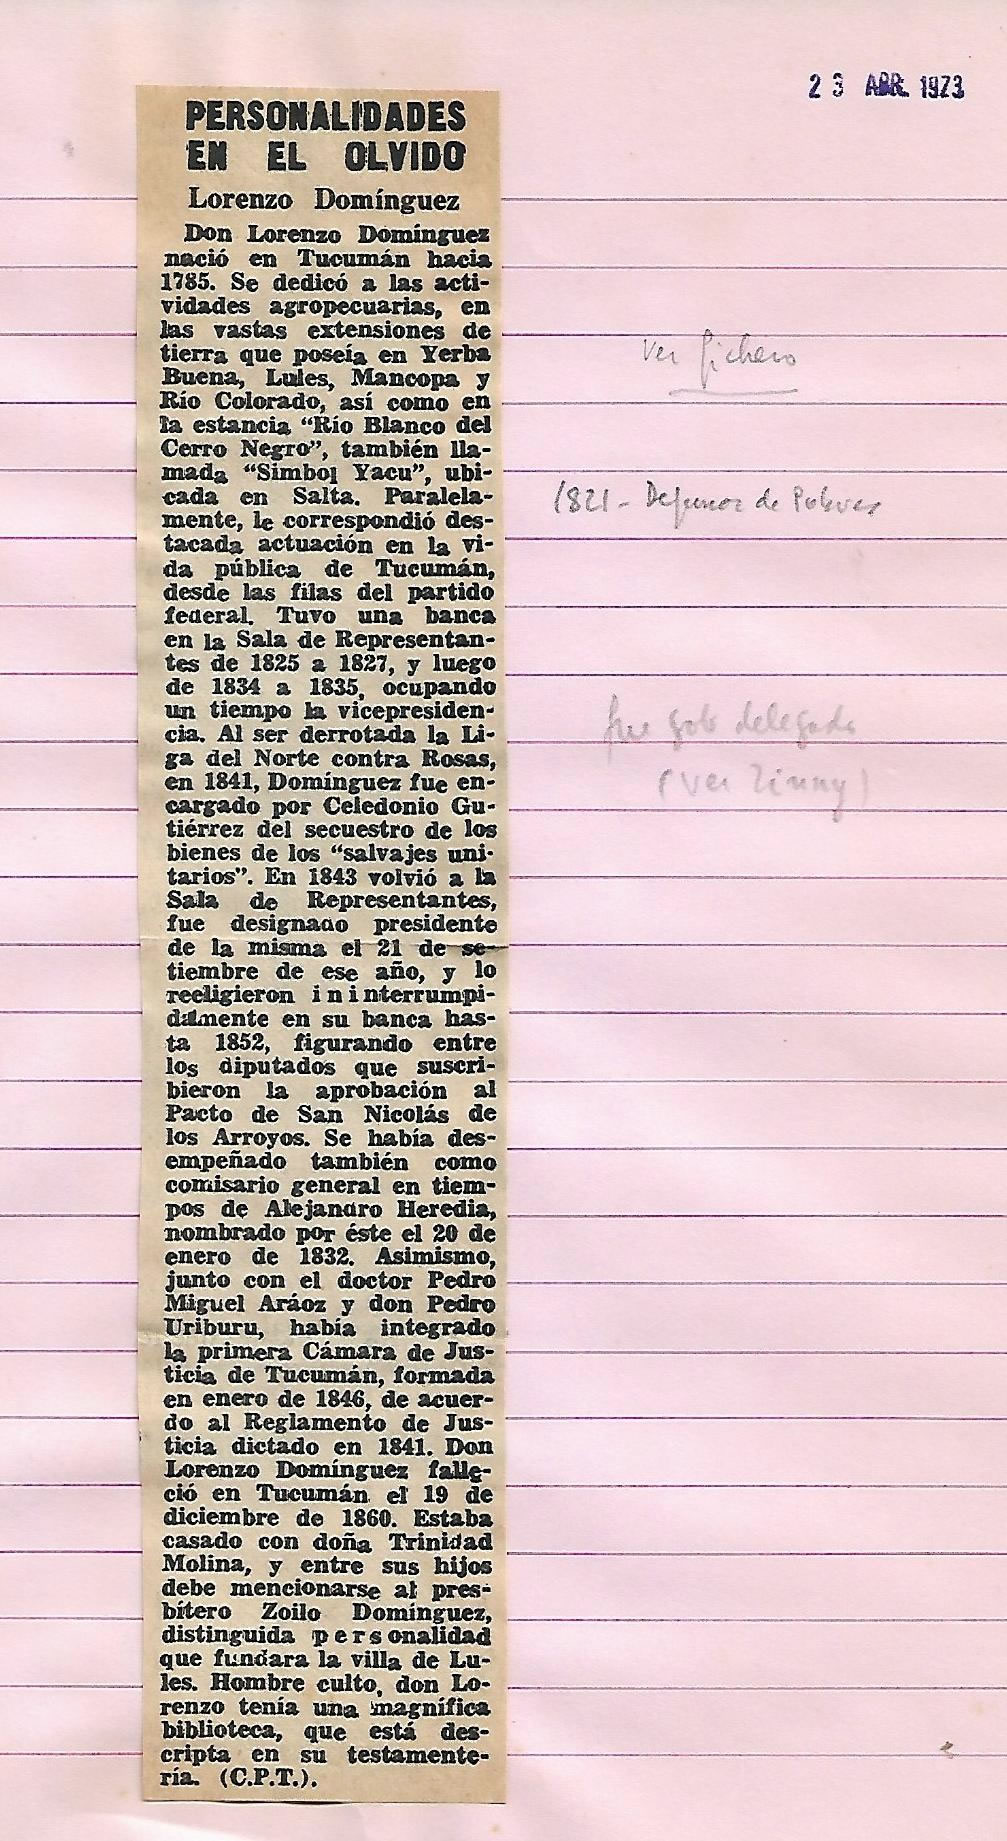 23 ABR. 1973
PERSONALIDADES
EN EL OLVIDO
Lorenzo Domínguez
Don Lorenzo Domínguez
nació en Tucumán hacia
1785. Se dedicó a las acti-
vidades agropecuarias, en
las vastas extensiones de
tierra que poseía en Yerba
Buena, Lules, Mancopa y
Río Colorado, así como en
la estancia “Río Blanco del
Cerro Negro”, también lla-
mada “Simbol Yacu”, ubi-
cada en Salta. Paralela-
mente, le correspondió des-
tacada actuación en la vi-
da pública de Tucumán,
desde las filas del partido
federal. Tuvo una banca
en la Sala de Representan-
tes de 1825 a 1827, y luego
de 1834 a 1835, ocupando
un tiempo la vicepresiden-
cia. Al ser derrotada la Li-
ga del Norte contra Rosas,
en 1841, Domínguez fue en-
cargado por Celedonio Gu-
tiérrez del secuestro de los
bienes de los “salvajes uni-
tarios”. En 1843 volvió a la
Sala de Representantes,
fue designado presidente
de la misma el 21 de se-
tiembre de ese año, y lo
reeligieron ininterrumpi-
damente en su banca has-
ta 1852, figurando entre
los diputados que suscri-
bieron la aprobación al
Pacto de San Nicolás de
los Arroyos. Se había des-
empeñado también como
comisario general en tiem-
pos de Alejandro Heredia,
nombrado por éste el 20 de
enero de 1832. Asimismo,
junto con el doctor Pedro
Miguel Aráoz y don Pedro
Uriburu, había integrado
la primera Cámara de Jus-
ticia de Tucumán, formada
en enero de 1846, de acuer-
do al Reglamento de Jus-
ticia dictado en 1841. Don
Lorenzo Domínguez falle-
ció en Tucumán el 19 de
diciembre de 1860. Estaba
casado con doña Trinidad
Molina, y entre sus hijos
debe mencionarse al pres-
bítero Zoilo Domínguez,
distinguida personalidad
que fundara la villa de Lu-
les. Hombre culto, don Lo-
renzo tenía una magnífica
biblioteca, que está des-
cripta en su testamente-
ría. (C.P.T.).
Ver fichero
1821 - Defensor de Pobres
fue gob delegado
(Ver Zinny)